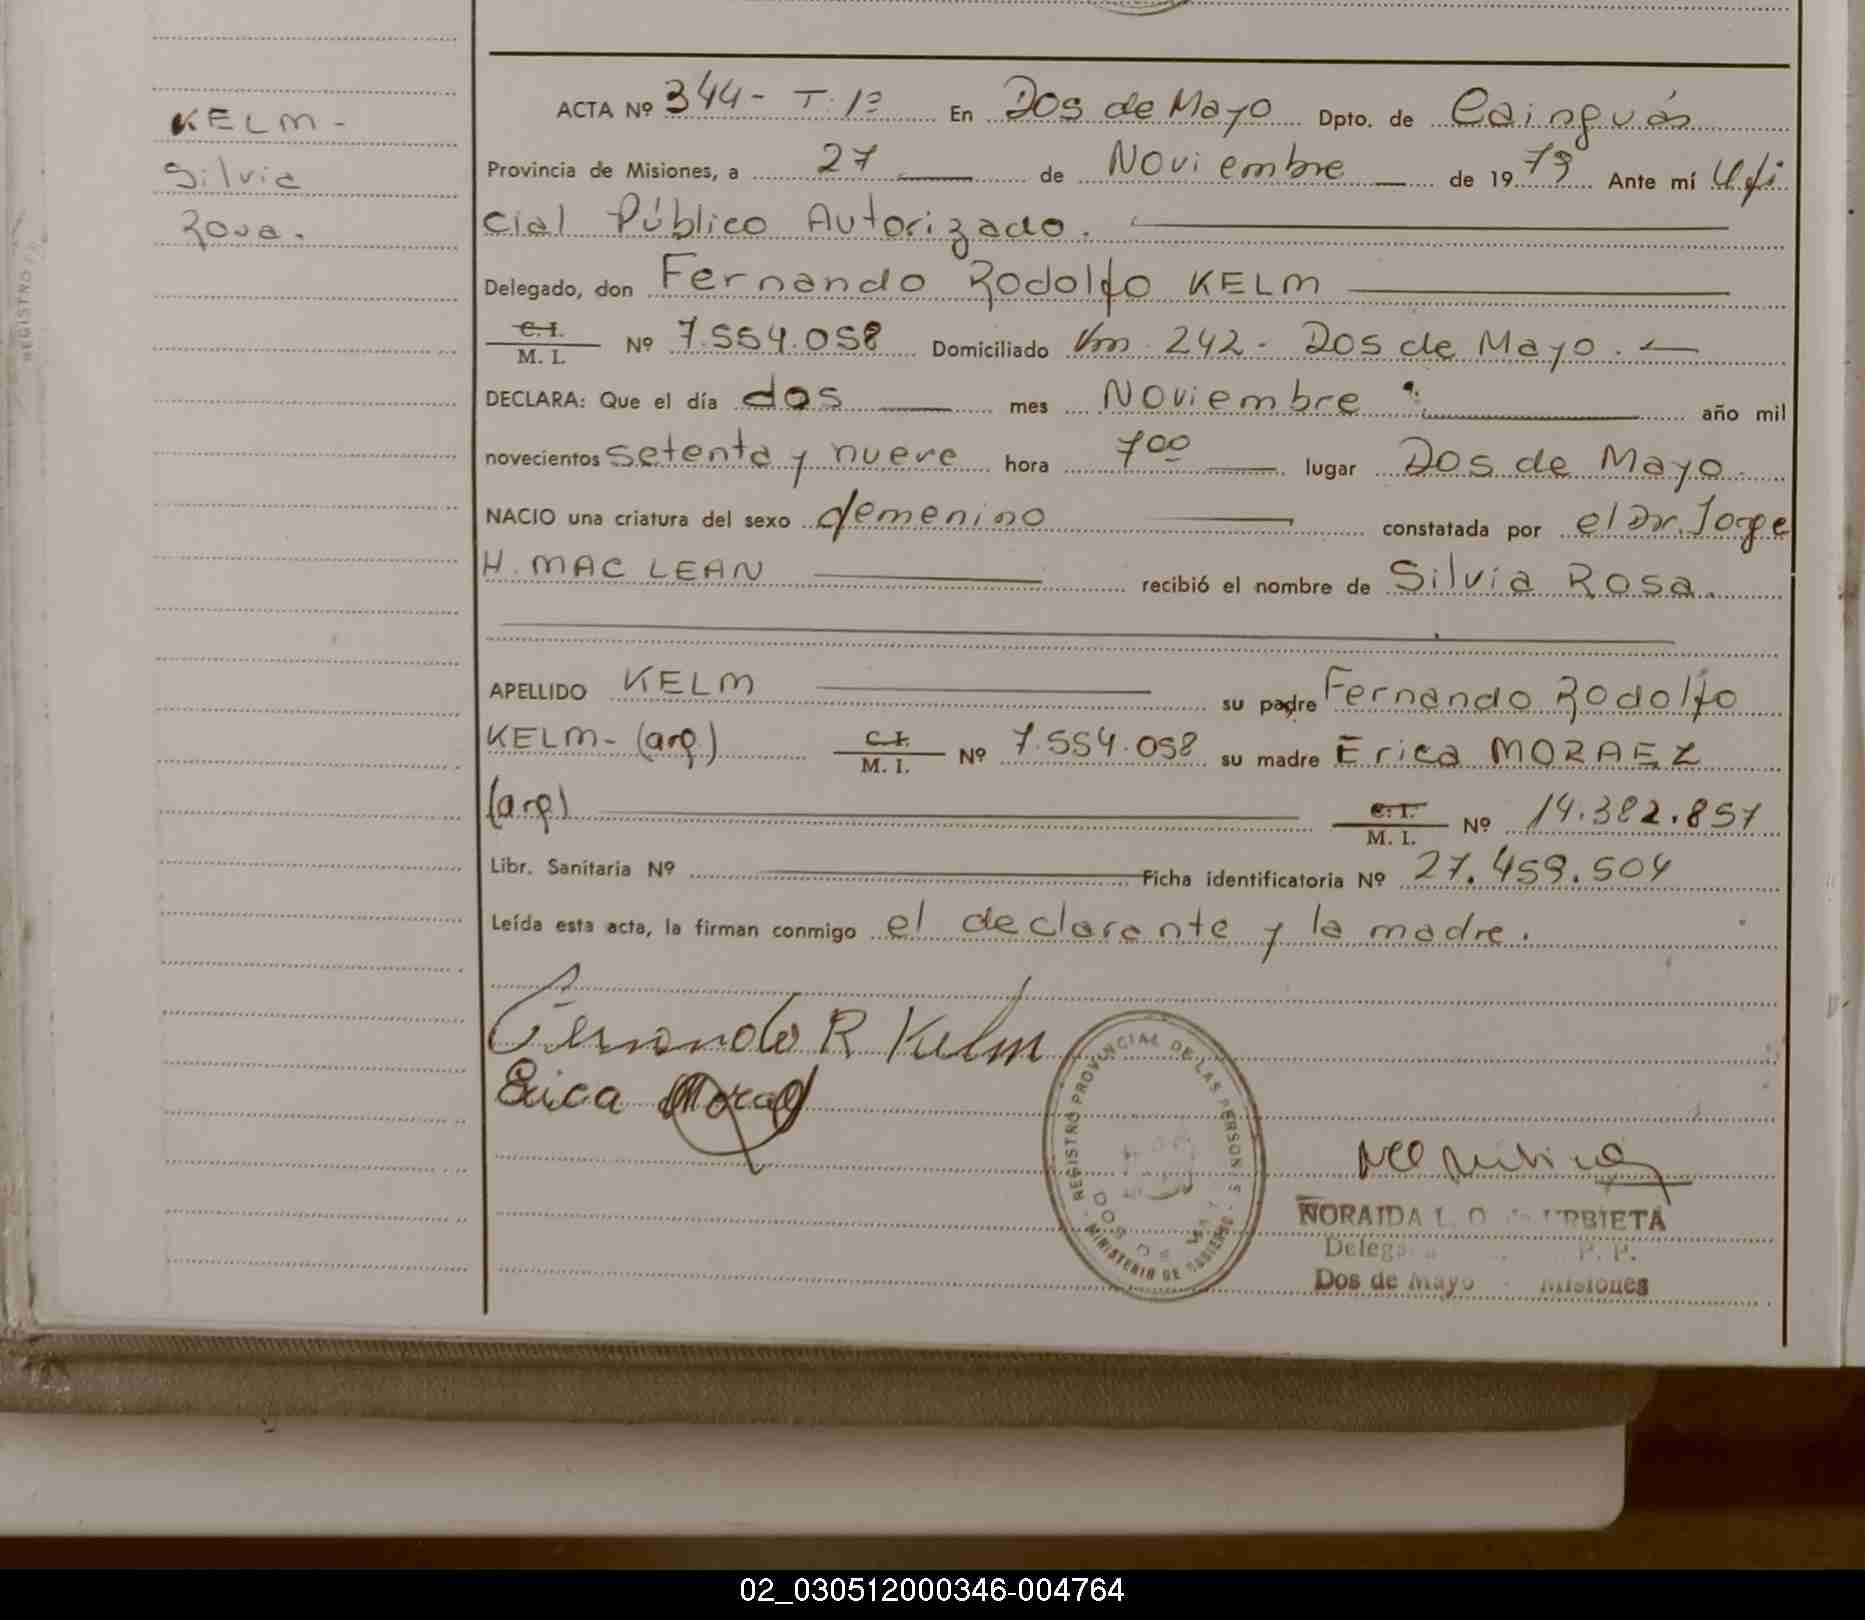 KELM -
Silvia
Rosa.
ACTA Nº 344- T. 1º En Dos de Mayo Dpto. de Cainguás
Provincia de Misiones, a 27 de Noviembre de 1979 Ante mí Ofi
cial Público Autorizado.
Delegado, don Fernando Rodolfo KELM
C. I.
M. I. Nº 7.554.058 Domiciliado Km 242 - Dos de Mayo.
DECLARA: Que el día dos mes Noviembre año mil
novecientos setenta y nueve hora 7⁰⁰ lugar Dos de Mayo.
NACIO una criatura del sexo femenino constatada por el Dr. Jorge
H. MAC LEAN recibió el nombre de Silvia Rosa.
APELLIDO KELM su padre Fernando Rodolfo
KELM- (arg) C. I. M. I. Nº 7.554.058 su madre Erica MORAEZ
(arg) C. I. M. I. Nº 14.382.857
Libr. Sanitaria Nº Ficha identificatoria Nº 27.459.504
Leída esta acta, la firman conmigo el declarante y la madre.
Fernando R Kelm
Erica
REGISTRO PROVINCIAL DE LAS PERSONAS
DOS DE MAYO
MINISTERIO DE GOBIERNO
NORAIDA L. O. de URBIETA
Dos de Mayo - Misiones
02_030512000346-004764